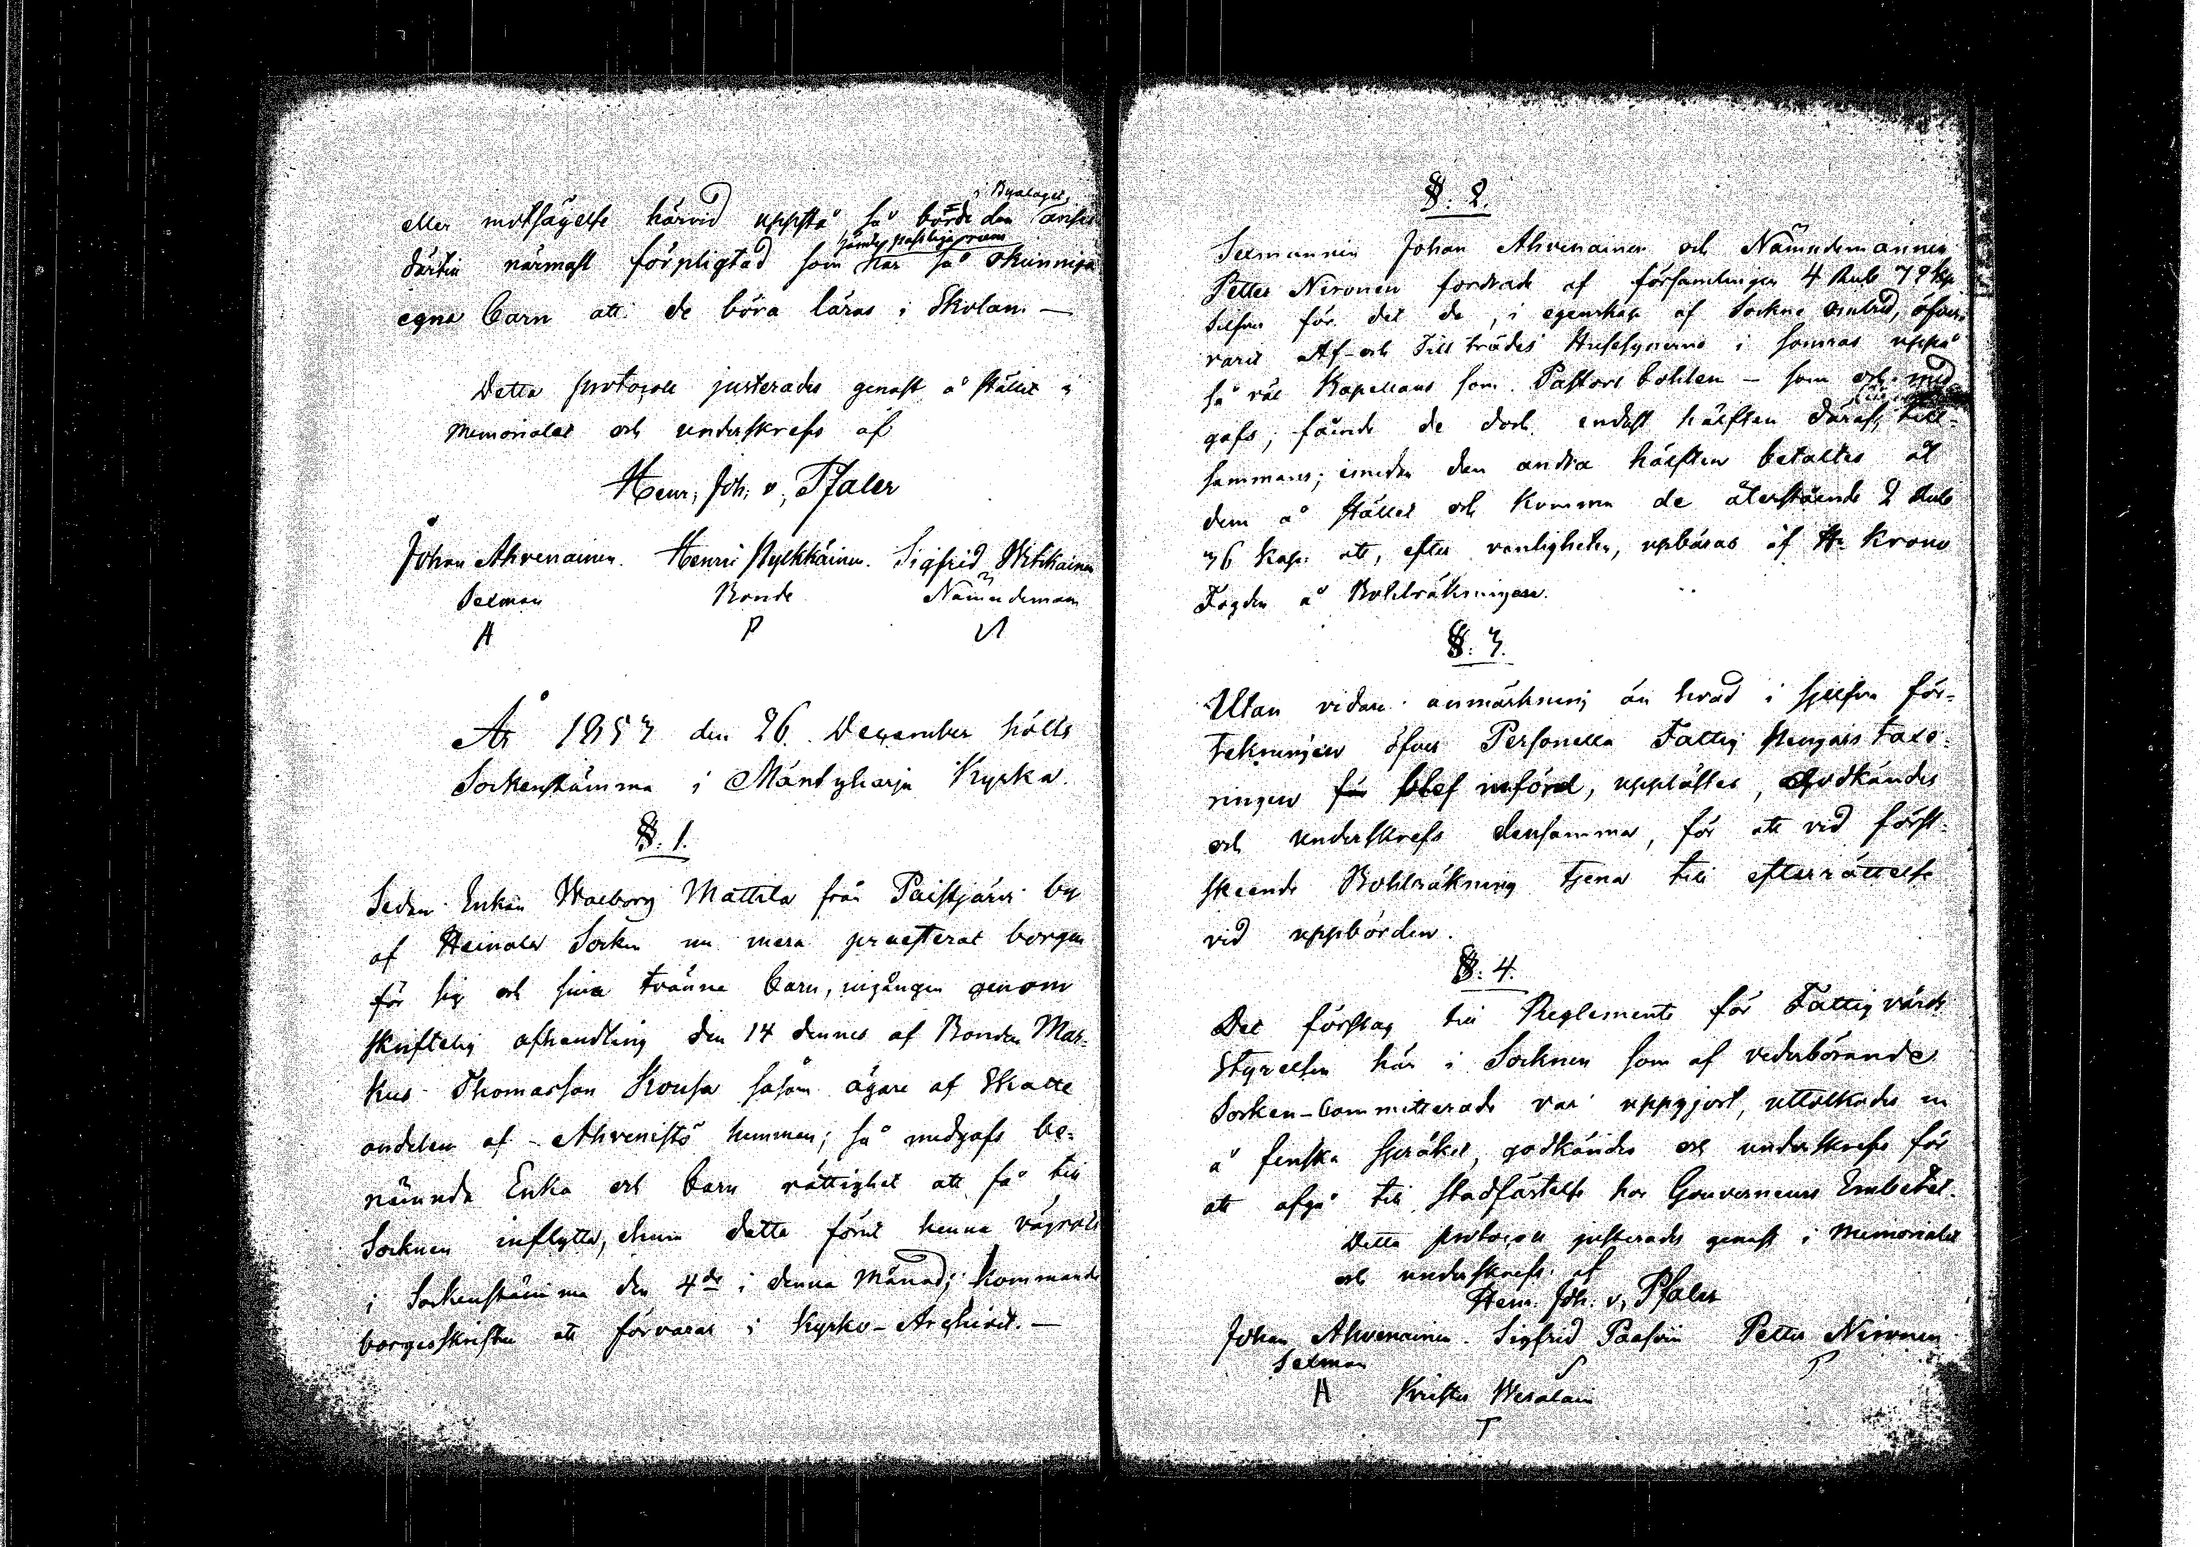 i Byalaget,
eller motsägelse härvid uppstå så borde den anses
därtill närmast förpligtad som har så okunniga
egna barn att de böra läras i Skolan. —
Detta protocoll justerades genast å stället i
memorialet och underskrefs af
Henr. Joh. v. Pfaler
Johan Ahvenainen. Henric Pylkkäinen. Sigfrid Wihkainen
Sexman Bonde Nämndeman
A P
År 1853 den 26. December hölts
Sockenstämma i Mäntyharju Kyrka.
§. 1.
Sedan Enkan Walborg Mattila från Paistjärvi by
af Heinola Socken nu mera præsterat borgen
för sig och sina tvänne barn, ingången genom
skriftelig afhandling den 14 dennes af Bonden Mar-
kus Thomasson Kousa såsom ägare af Skatte
andelen af Ahvenisto hemman; så medgafs be-
nämnda Enka och barn rättighet att få till
Socknen inflytta, ehuru detta förut henne vägrats
i Sockenstämma den 4de i denna Månad; kommande
borgesskriften att förvaras i Kyrko-Archivet. —
§. 2.
Sexmannen Johan Ahvenainen och Nämndemannen
Petter Nironen fordrade af församlingen 4 Rub 72 kop
Silfver för det de, i egenskap af Sockne ombud, öfver-
varit Af- och Tillträdes Husesynerne i somras uppå
så väl Kapellans som Pastors bohlen – som och med
gafs; fående de dock endast hälften däraf till-
sammans; emedan den andra hälften betaltes åt
dem å stället och komma de återstående 2 Rub
36 kop. att, efter vanligheten, upbäras af Hr Krono
Fogden å Bohlräkningen.
§. 3.
Utan vidare anmärkning än hvad i sjelfva för-
tekningen öfver Personella Fattig Pengars taxe-
ringen blef införd, upplästes, godkändes
och underskrefs densamma, för att vid först-
skeende Bohlräkning tjena till efterrättelse
vid uppbörden.
§. 4.
Det förslag till Reglemente för Fattigvårds
Styrelsen här i Socknen som af vederbörande
Socken-Committerade var uppgjort, uttolkades nu
å finska språket, godkändes och underskrefs för
att afgå till stadfästelse hos Gouverneurs Embetet.
Detta protocoll justerades genast i Memorialet
och underskrefs af
Henr. Joh. v. Pfaler
Johan Ahvenainen. Sigfrid Paasoin Petter Nironen
Sexman
A Krister Wesalain
T